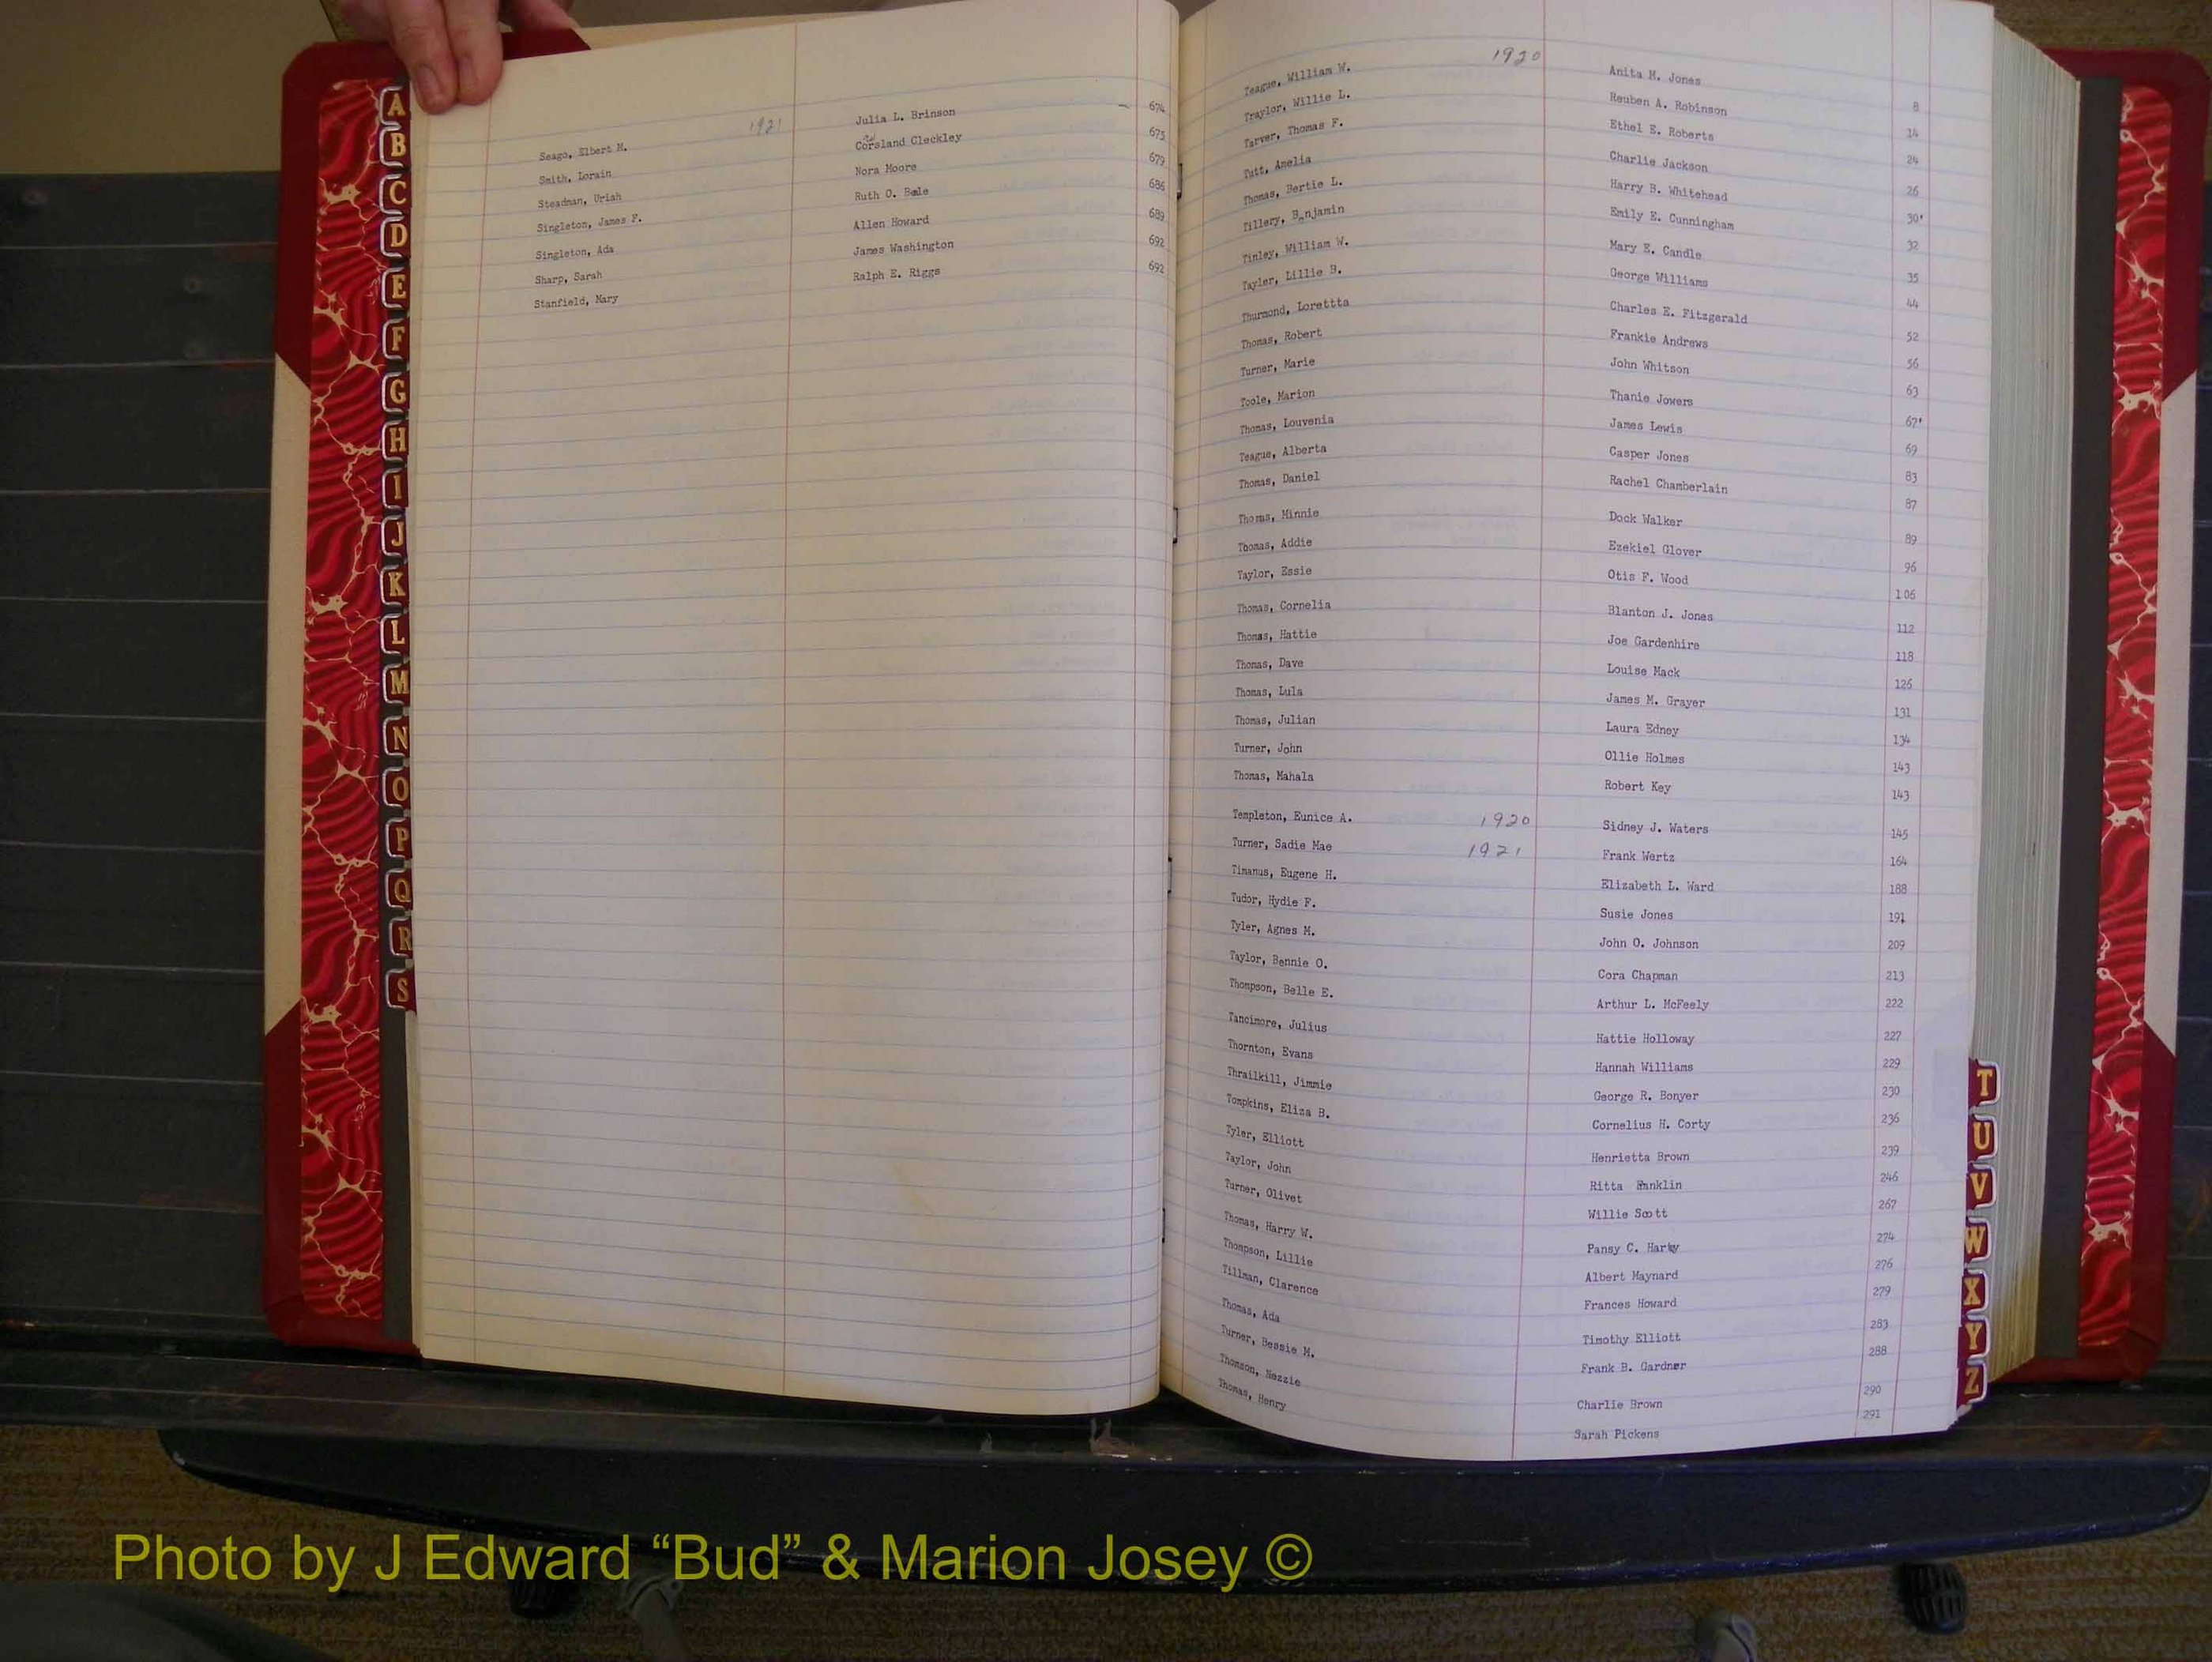 A
B
C
D
E
F
G
H
I
J
K
L
M
N
O
P
Q
R
S
1921
Seago, Elbert M. Julia L. Brinson 674
Smith, Lorain Corsland Cleckley 675
Steadman, Uriah Nora Moore 679
Singleton, James F. Ruth O. Beale 686
Singleton, Ada Allen Howard 689
Sharp, Sarah James Washington 692
Stanfield, Mary Ralph E. Riggs 692
1920
Teague, William W. Anita M. Jones 8
Traylor, Willie L. Reuben A. Robinson 14
Tarver, Thomas F. Ethel E. Roberts 24
Tutt, Amelia Charlie Jackson 26
Thomas, Bertie L. Harry B. Whitehead 30'
Tillery, Benjamin Emily E. Cunningham 32
Tinley, William W. Mary E. Candle 35
Tayler, Lillie B. George Williams 44
Thurmond, Lorettta Charles E. Fitzgerald 52
Thomas, Robert Frankie Andrews 56
Turner, Marie John Whitson 63
Toole, Marion Thanie Jowers 67'
Thomas, Louvenia James Lewis 69
Teague, Alberta Casper Jones 83
Thomas, Daniel Rachel Chamberlain 87
Thomas, Minnie Dock Walker 89
Thomas, Addie Ezekiel Glover 96
Taylor, Essie Otis F. Wood 106
Thomas, Cornelia Blanton J. Jones 112
Thomas, Hattie Joe Gardenhire 118
Thomas, Dave Louise Mack 126
Thomas, Lula James M. Grayer 131
Thomas, Julian Laura Edney 134
Turner, John Ollie Holmes 143
Thomas, Mahala Robert Key 143
Templeton, Eunice A. 1920 Sidney J. Waters 145
Turner, Sadie Mae 1921 Frank Wertz 164
Timanus, Eugene H. Elizabeth L. Ward 188
Tudor, Hydie F. Susie Jones 191
Tyler, Agnes M. John O. Johnson 209
Taylor, Bennie O. Cora Chapman 213
Thompson, Belle E. Arthur L. McFeely 222
Tancimore, Julius Hattie Holloway 227
Thornton, Evans Hannah Williams 229
Thrailkill, Jimmie George R. Bonyer 230
Tompkins, Eliza B. Cornelius H. Corty 236
Tyler, Elliott Henrietta Brown 239
Taylor, John Ritta 246
Turner, Olivet Willie Scott 267
Thomas, Harry W. Pansy C. 274
Thompson, Lillie Albert Maynard 276
Tillman, Clarence Frances Howard 279
Thomas, Ada Timothy Elliott 283
Turner, Bessie M. Frank B. Gardner 288
Thomson, Nezzie Charlie Brown 290
Thomas, Henry Sarah Pickens 291
T
U
V
W
X
Y
Z
Photo by J Edward “Bud” & Marion Josey ©